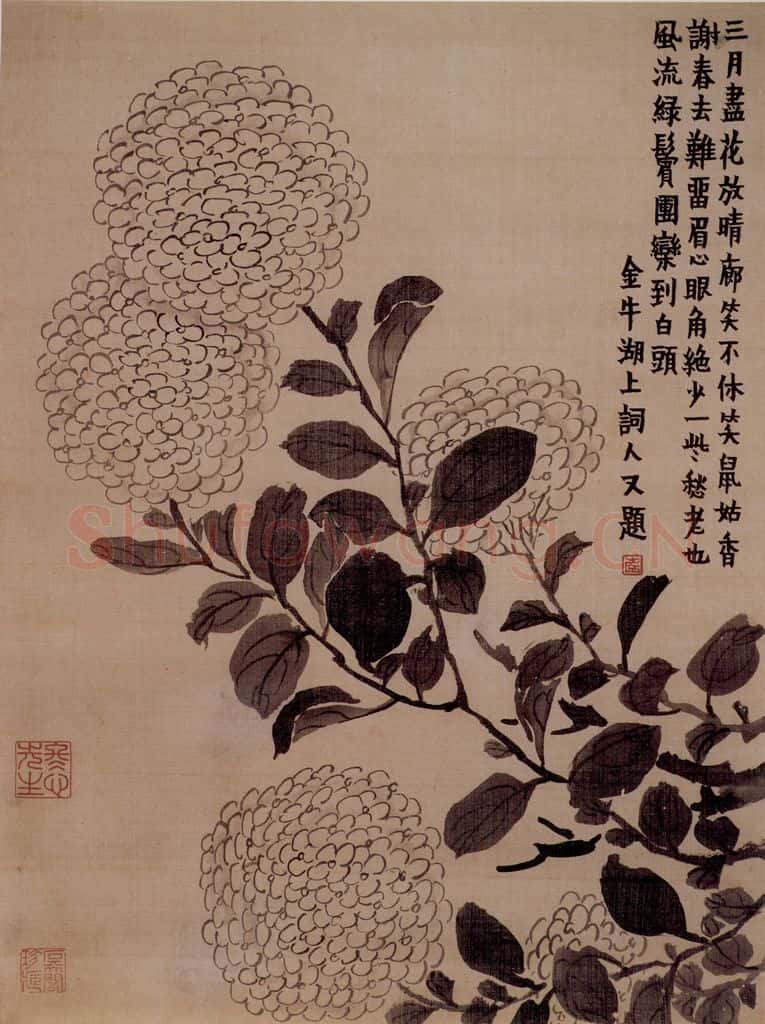 三月盡花放晴廊笑不休笑鼠姑香
謝春去難畱眉心眼角絶少一些些愁老也
風流緑鬢團欒到白頭
金牛湖上詞人又題
Shufawang.CN